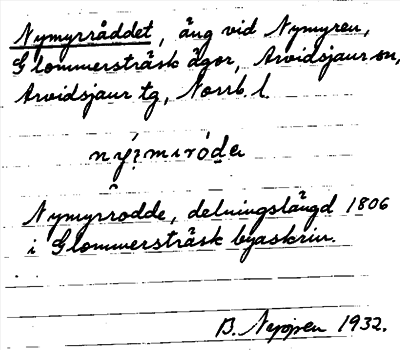 Nymyrråddet, äng vid Nymyren,
Glommersträsk ägor, Arvidsjaur sn,
Arvidsjaur tg, Norrb. l.
nýꝛmıróde
Nymyrrodde, delningslängd 1806
i Glommersträsk byaskrin.
B. Nygren 1932.